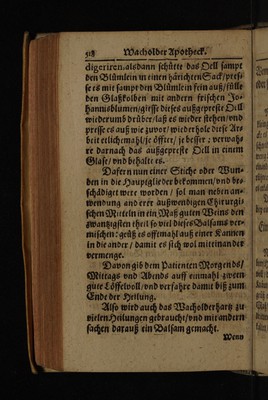 518 Wacholder Apotheck.
digeriren. alsdann schütte das Oell sampt
den Blümlein in einen härichten Sack/pres-
se es mit sampt den Blümlein fein auß/fülle
den Glaßkolben mit andern frischen Jo-
hannisblumen/giesse dieses außgepreste Oell
wiederumb drüber/laß es wieder stehen/und
presse es auß wie zuvor/wiederhole diese Ar-
beit etlichemahl/je öffter/je besser: verwah-
re darnach das außgepreste Oell in einem
Glase/und behalte es.
Dafern nun einer Stiche oder Wun-
den in die Hauptglieder bekommen/und bes-
chädiget were worden/sol man neben an-
wendung anderer äußwendigen Chirurgi-
schen Mitteln in ein Maß guten Weins den
zwantzigsten theil so viel dieses Balsams ver-
mischen: geüß es offtmahl auß einer Kannen
in die ander/damit es sich wol miteinander
vermenge.
Davon gib dem Patienten Morgends/
Mittags und Abends auff einmahl zween
gute Löffelvoll/und verfahre damit biß zum
Ende der Heilung.
Also wird auch das Wacholderhartz zu
vielen Heilungen gebraucht/und mit andern
sachen darauß ein Balsam gemacht.
Wenn